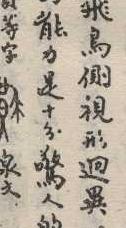 飛鳥側視形迥異
能力是十分驚人的
等字
泉文